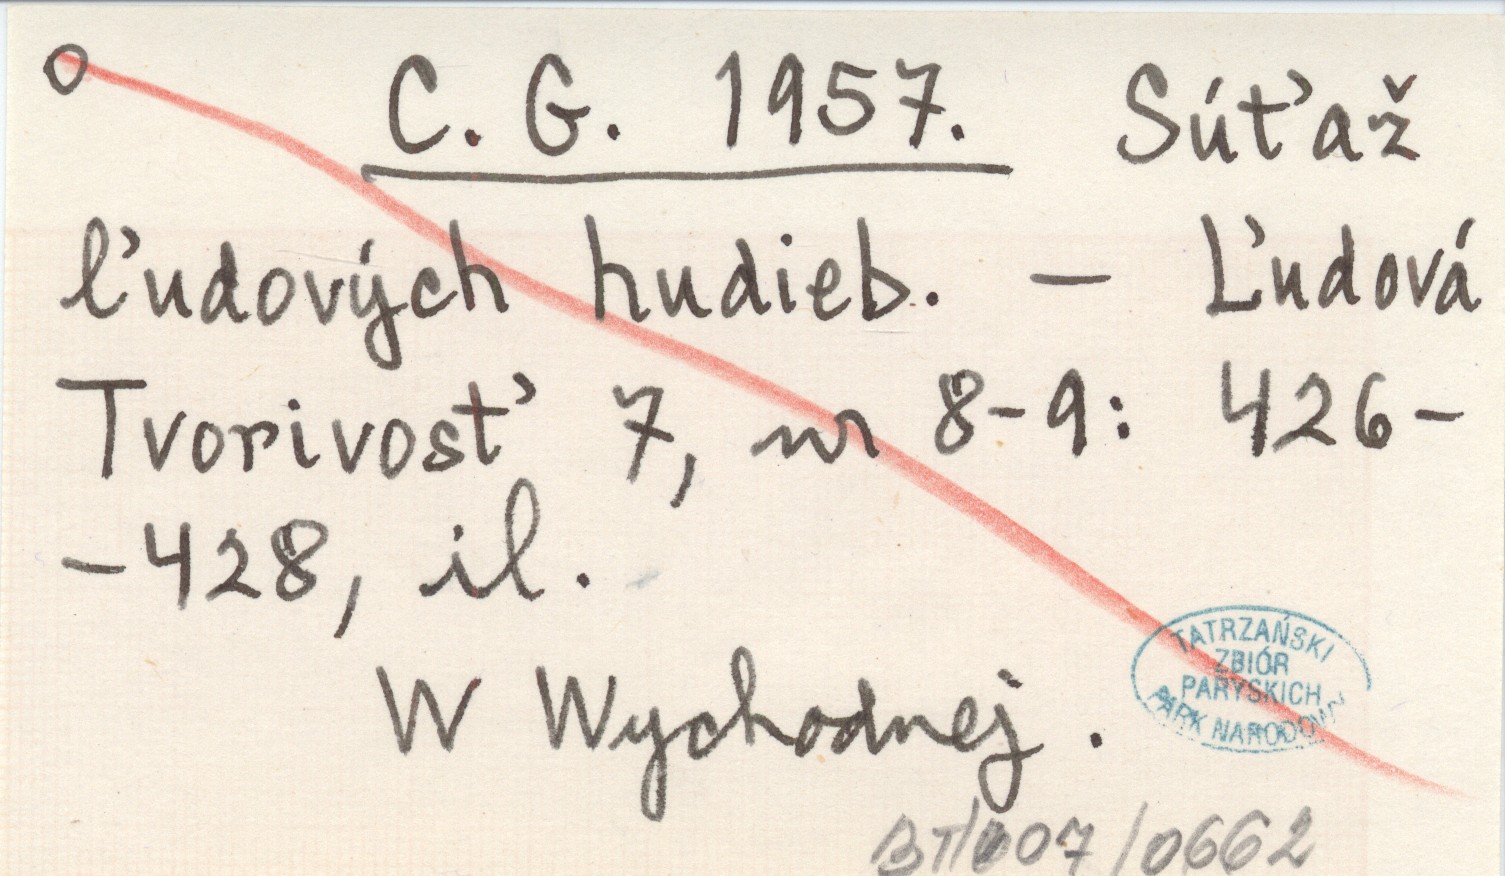 O C. G. 1957. Súťaž
ľudových hudieb. — Ľudová
Tvorivosť 7, nr 8-9: 426-
-428, il.
W Wychodnej.
TATRZAŃSKI
ZBIÓR
PARYSKICH
PARK NARODOWY
BT/007/0662